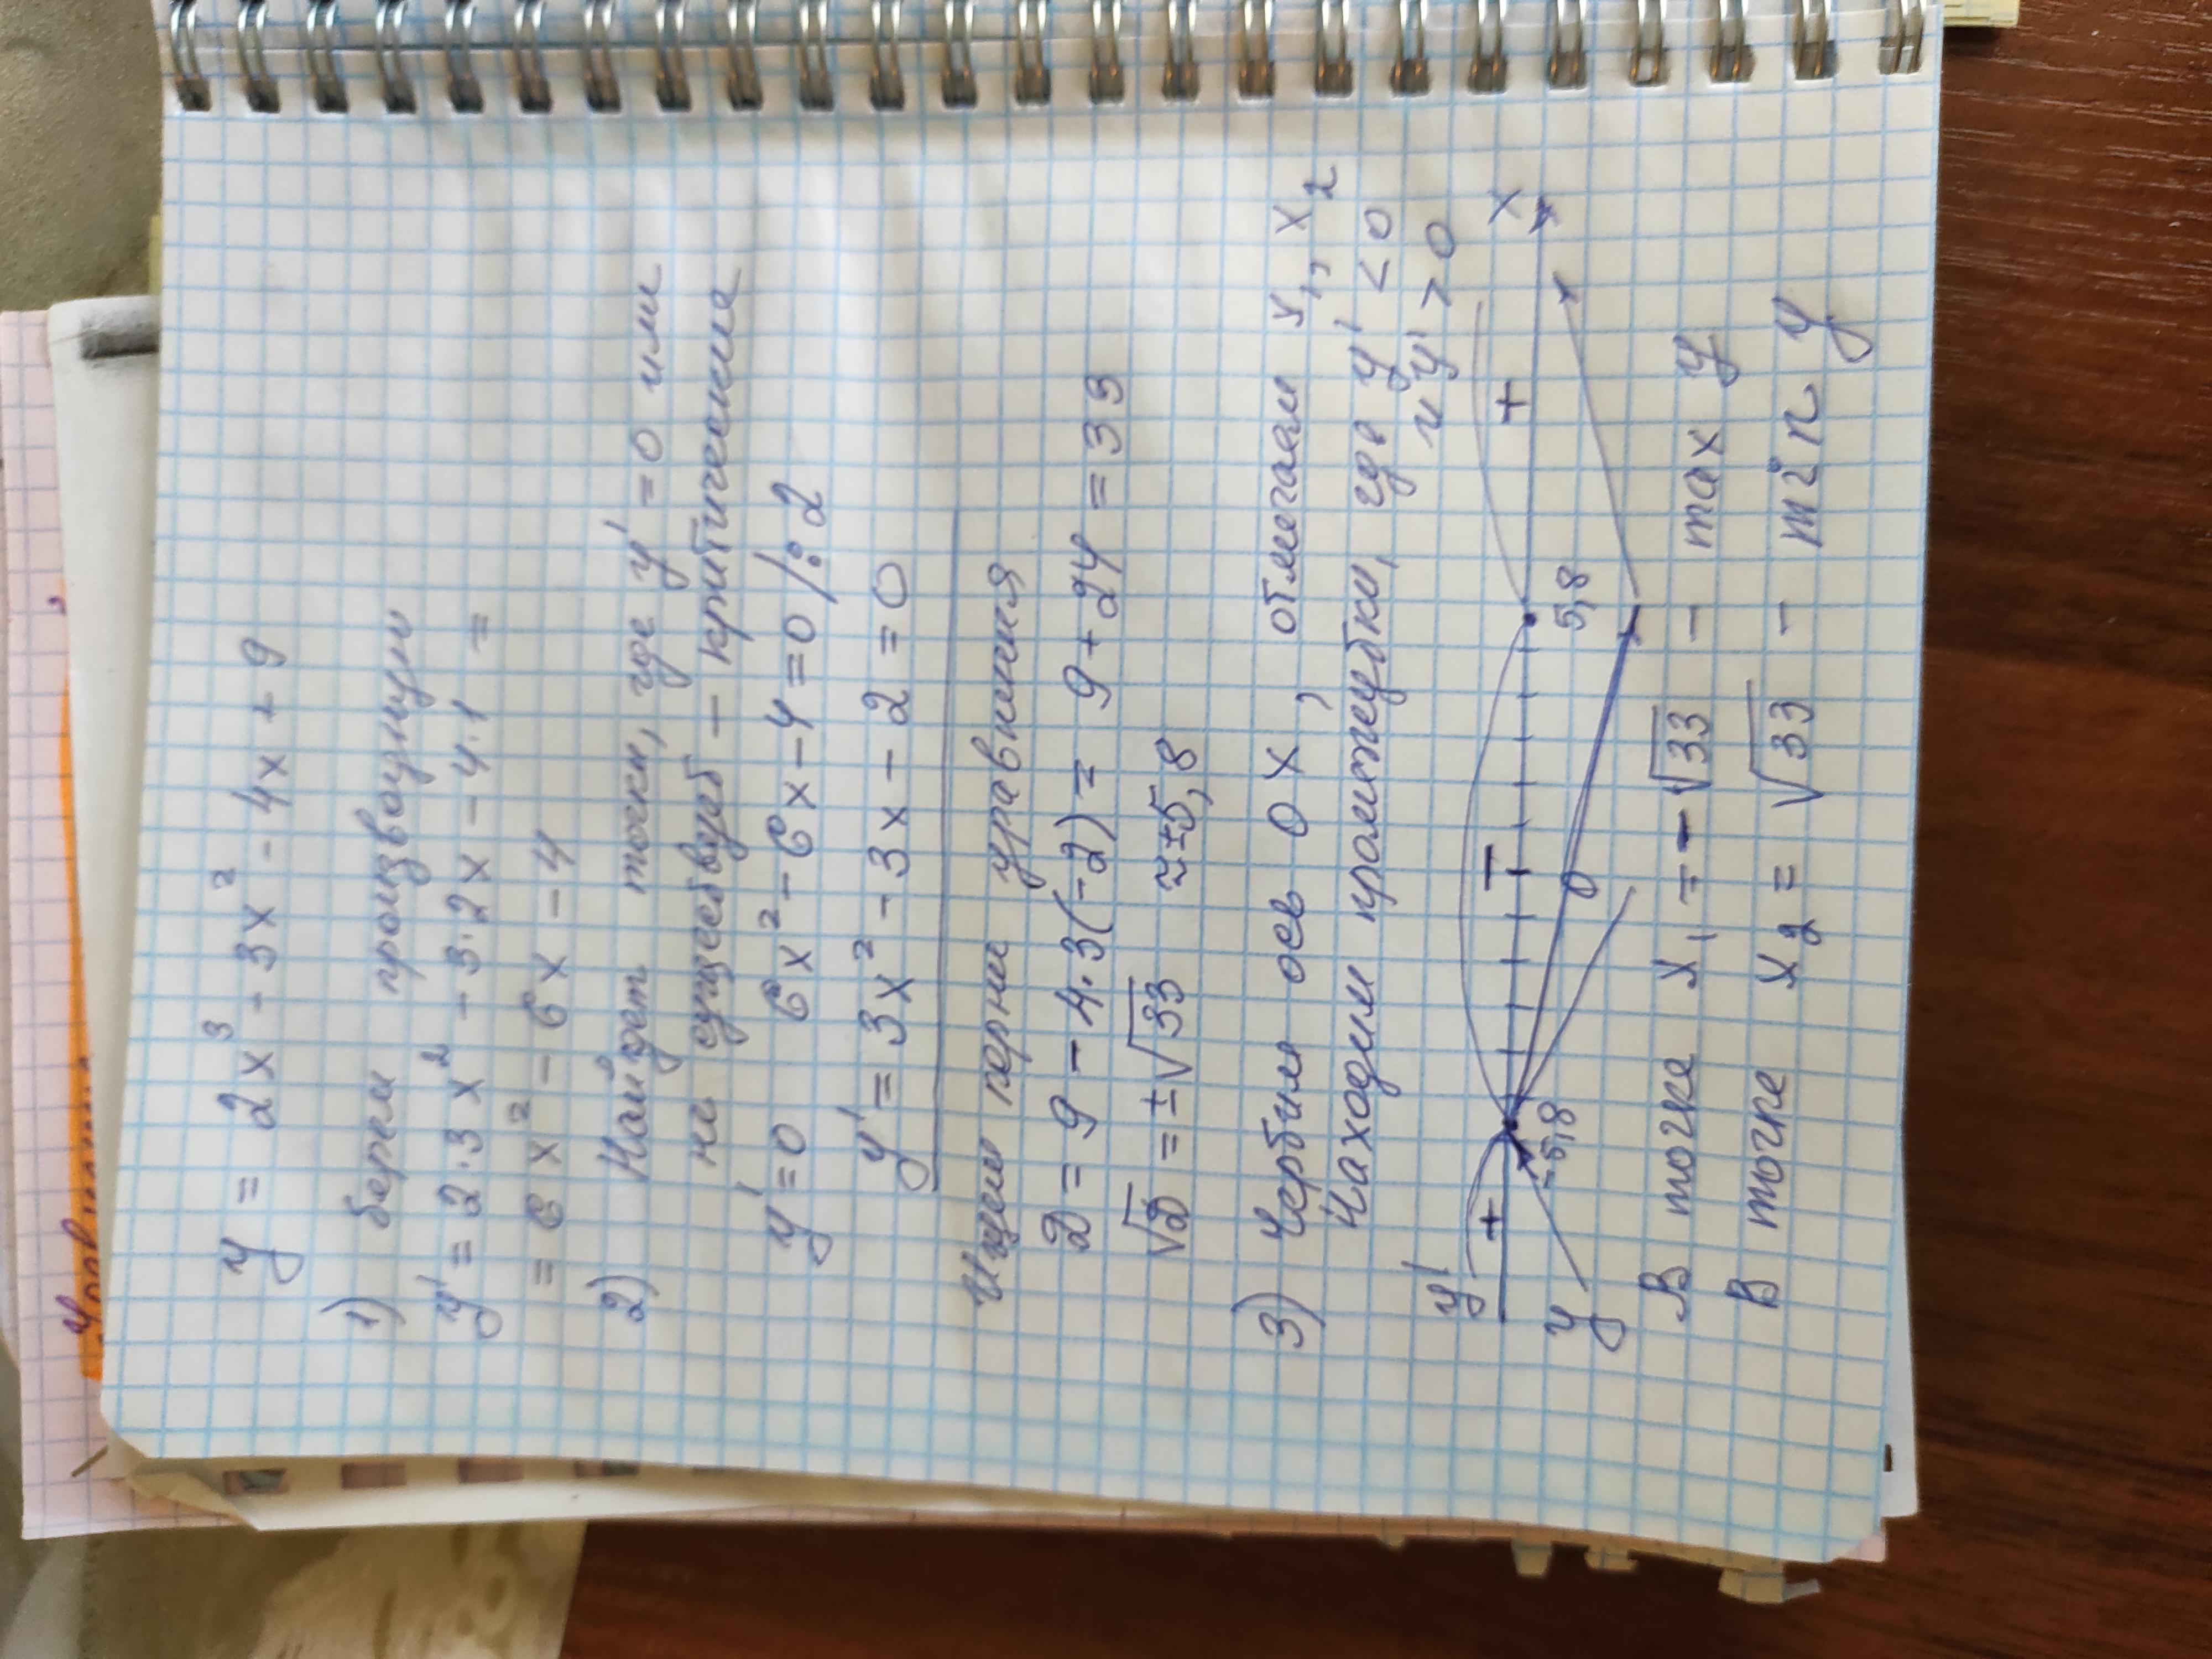 y = 2x³ - 3x² - 4x + 9
1) берем производную
y' = 2·3x² - 3·2x - 4·1 =
= 6x² - 6x - 4
2) Найдем точки, где y' = 0 или
не существует - критические
y' = 0 6x² - 6x - 4 = 0 /:2
y' = 3x² - 3x - 2 = 0
Ищем корни уравнения
D = 9 - 4·3(-2) = 9 + 24 = 33
√D = ±√33 ≈ ±5,8
3) Чертим ось OX, отмечаем x₁, x₂
Находим промежутки, где y' < 0
и y' > 0
y' + - + x
-5,8 5,8
y 0
В точке x₁ = -√33 - max y
В точке x₂ = √33 - min y